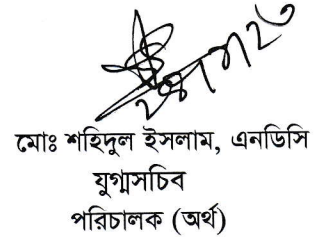 মোঃ শহিদুল ইসলাম, এনডিসি
যুগ্মসচিব
পরিচালক (অর্থ)